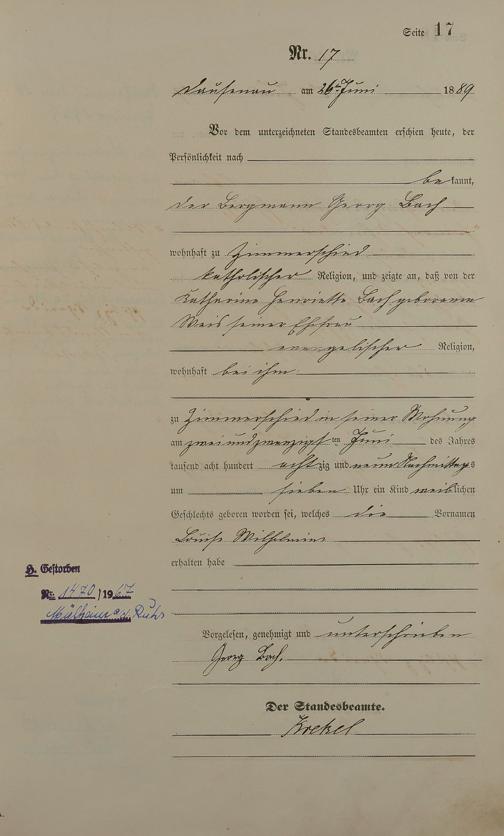 Seite 17
Nr. 17
Dausenau am 26ten Juni 1889
Vor dem unterzeichneten Standesbeamten erschien heute, der
Persönlichkeit nach
bekannt,
der Bergmann Georg Bach
wohnhaft zu Zimmerschied
katholischer Religion, und zeigte an, daß von der
Katharine Henriette Bach geborenen
Weis seiner Ehefrau
evangelischer Religion,
wohnhaft bei ihm
zu Zimmerschied in seiner Wohnung
am zwei und zwanzigsten Juni des Jahres
tausend acht hundert achtzig und neun Nachmittags
um sieben Uhr ein Kind weiblichen
Geschlechts geboren worden sei, welches die Vornamen
Louise Wilhelmine
erhalten habe
H. Gestorben
Nr. 1470/1967
Mülheim a.d. Ruhr
Vorgelesen, genehmigt und unterschrieben
Georg Bach.
Der Standesbeamte.
Krekel